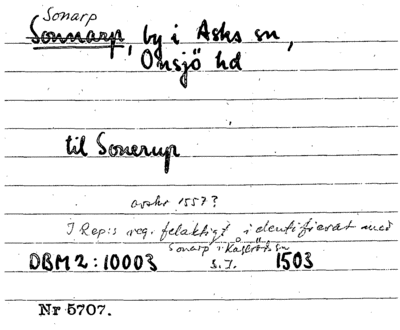 Sonarp
Sonnarp, by i Asks sn,
Onsjö hd
til Sonerup
avskr 1557?
I Rep:s reg. felaktigt identifierat med
Sonarp i Kågeröds sn
DBM2:10003 s.J. 1503
Nr 5707.